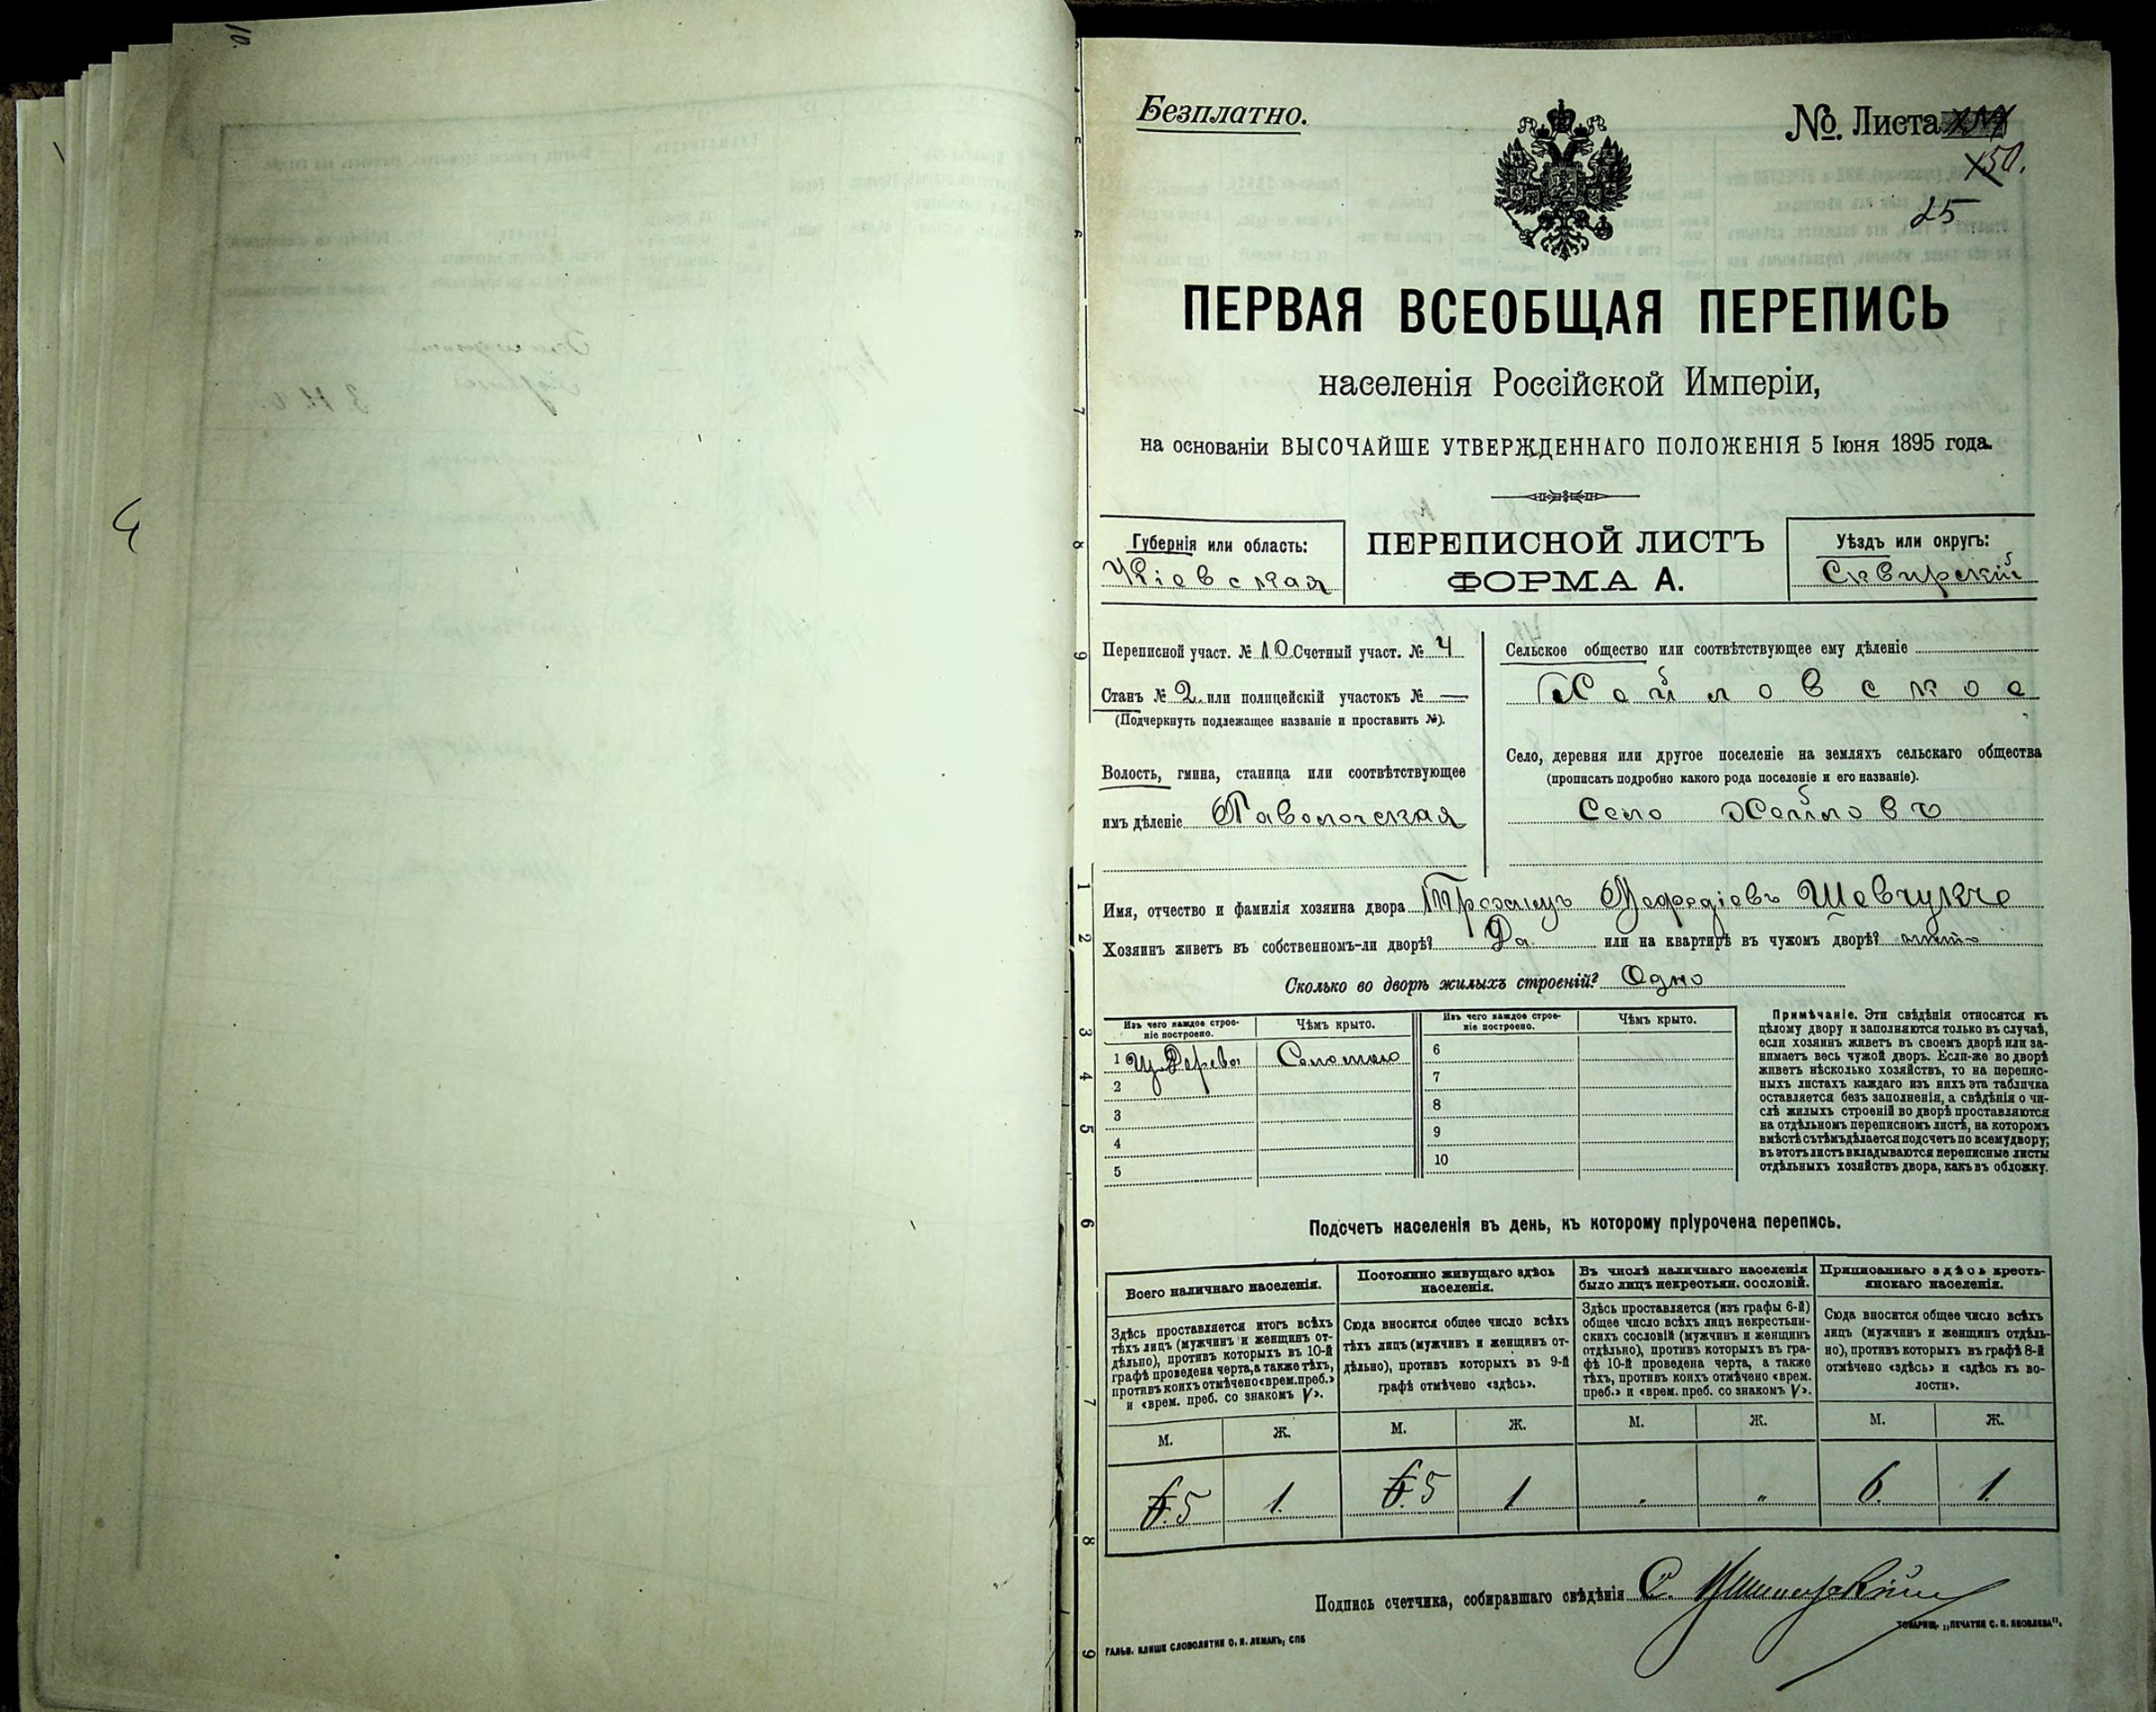 10.
4
Безплатно.
№ Листа
150.
25
ПЕРВАЯ ВСЕОБЩАЯ ПЕРЕПИСЬ
населенія Россійской Имперіи,
на основаніи ВЫСОЧАЙШЕ УТВЕРЖДЕННАГО ПОЛОЖЕНІЯ 5 Іюня 1895 года.
Губернія или область:
Кіевская
ПЕРЕПИСНОЙ ЛИСТЪ
ФОРМА А.
Уѣздъ или округъ:
Сквирскій
Переписной участ. № 10. Счетный участ. № 4
Станъ № 2. или полицейскій участокъ № —
(Подчеркнуть подлежащее названіе и проставить №).
Волость, гмина, станица или соотвѣтствующее
имъ дѣленіе Паволочская
Сельское общество или соотвѣтствующее ему дѣленіе
Хейловское
Село, деревня или другое поселеніе на земляхъ сельскаго общества
(прописать подробно какого рода поселеніе и его названіе).
Село Хейловъ
Имя, отчество и фамилія хозяина двора Трофимъ Мефодіевъ Шевчукъ
Хозяинъ живетъ въ собственномъ-ли дворѣ? Да или на квартирѣ въ чужомъ дворѣ?
Сколько во дворѣ жилыхъ строеній? Одно
Изъ чего каждое строе-
ніе построено.
Чѣмъ крыто.
Изъ чего каждое строе-
ніе построено.
Чѣмъ крыто.
1 Из Дерева Соломою 6
2 7
3 8
4 9
5 10
Примѣчаніе. Эти свѣдѣнія относятся къ
цѣлому двору и заполняются только въ случаѣ,
если хозяинъ живетъ въ своемъ дворѣ или за-
нимаетъ весь чужой дворъ. Если-же во дворѣ
живетъ нѣсколько хозяйствъ, то на перепис-
ныхъ листахъ каждаго изъ нихъ эта табличка
оставляется безъ заполненія, а свѣдѣнія о чи-
слѣ жилыхъ строеній во дворѣ проставляются
на отдѣльномъ переписномъ листѣ, на которомъ
вмѣстѣ съ тѣмъ дѣлается подсчетъ по всему двору;
въ этотъ листъ вкладываются переписные листы
отдѣльныхъ хозяйствъ двора, какъ въ обложку.
Подсчетъ населенія въ день, къ которому пріурочена перепись.
Всего наличнаго населенія.
Здѣсь проставляется итогъ всѣхъ
тѣхъ лицъ (мужчинъ и женщинъ от-
дѣльно), противъ которыхъ въ 10-й
графѣ проведена черта, а также тѣхъ,
противъ коихъ отмѣчено «врем. преб.»
и «врем. преб. со знакомъ V».
Постоянно живущаго здѣсь
населенія.
Сюда вносится общее число всѣхъ
тѣхъ лицъ (мужчинъ и женщинъ от-
дѣльно), противъ которыхъ въ 9-й
графѣ отмѣчено «здѣсь».
Въ числѣ наличнаго населенія
было лицъ некрестьян. сословій.
Здѣсь проставляется (изъ графы 6-й)
общее число всѣхъ лицъ некрестьян-
скихъ сословій (мужчинъ и женщинъ
отдѣльно), противъ которыхъ въ гра-
фѣ 10-й проведена черта, а также
тѣхъ, противъ коихъ отмѣчено «врем.
преб.» и «врем. преб. со знакомъ V».
Приписаннаго здѣсь кресть-
янскаго населенія.
Сюда вносится общее число всѣхъ
лицъ (мужчинъ и женщинъ отдѣль-
но), противъ которыхъ въ графѣ 8-й
отмѣчено «здѣсь» и «здѣсь къ во-
лости».
М. Ж. М. Ж. М. Ж. М. Ж.
6. 5 1. 6. 5 1 " " 6. 1.
Подпись счетчика, собиравшаго свѣдѣнія С.
ГАЛЬВ. КЛИШЕ СЛОВОЛИТНИ О. И. ЛЕМАНЪ, СПБ
ТОВАРИЩ. „ПЕЧАТНЯ С. П. ЯКОВЛЕВА".